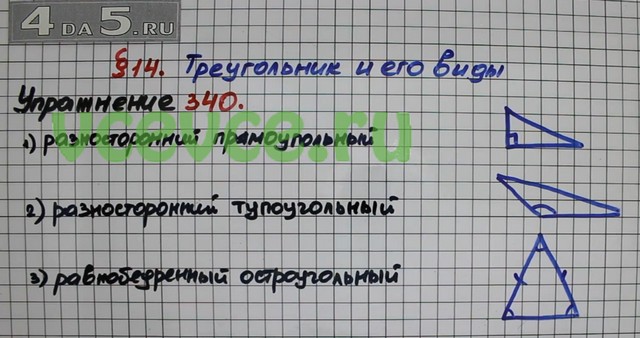 4 ДА 5.RU
§14. Треугольник и его виды
Упражнение 340.
vcevce.ru
1) разносторонний прямоугольный
2) разносторонний тупоугольный
3) равнобедренный остроугольный